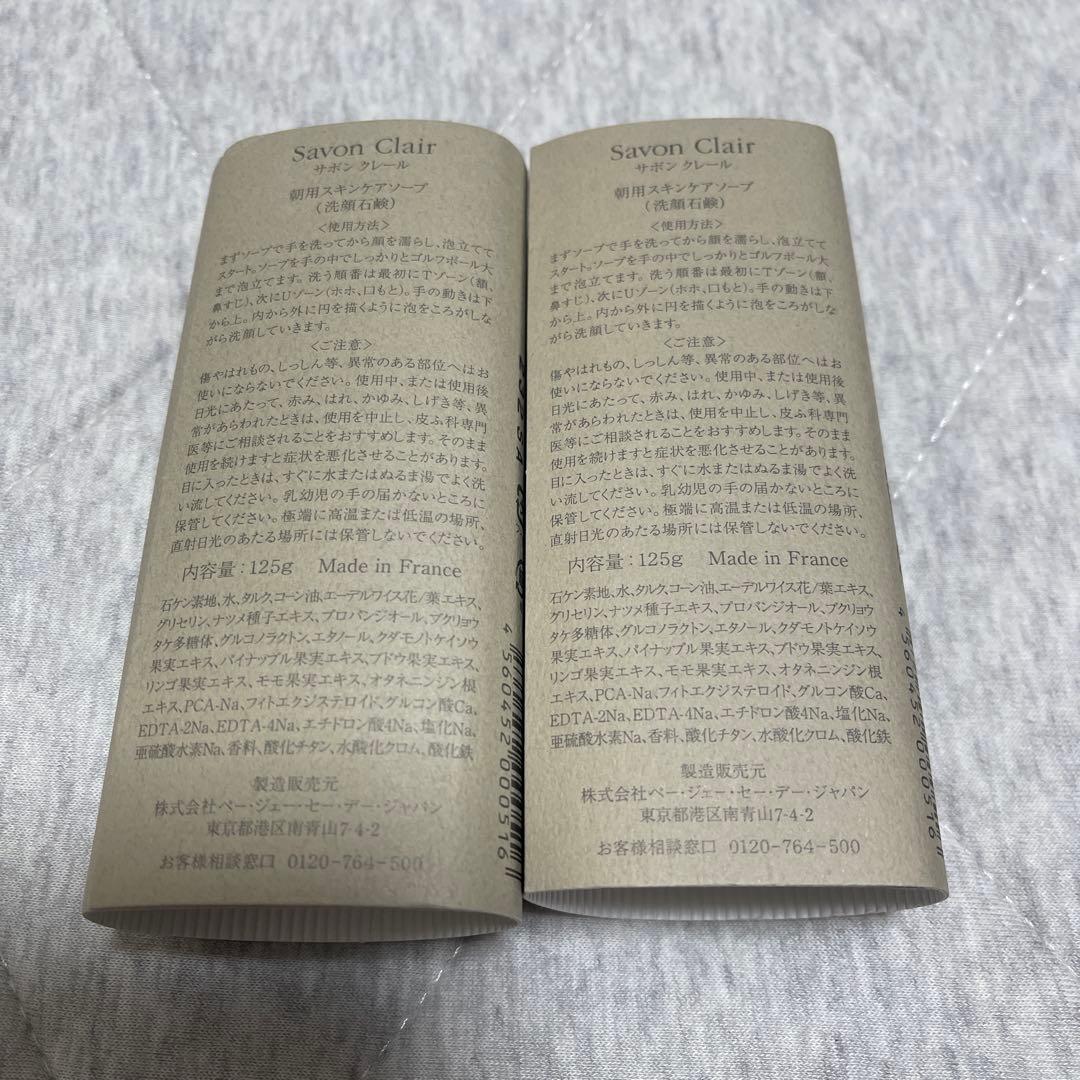 Savon Clair
サボン クレール
朝用スキンケアソープ
(洗顔石鹸)
<使用方法>
まずソープで手を洗ってから顔を濡らし、泡立てて
スタート。ソープを手の中でしっかりとゴルフボール大
まで泡立てます。洗う順番は最初にTゾーン(額、
鼻すじ)、次にUゾーン(ホホ、口もと)。手の動きは下
から上。内から外に円を描くように泡をころがしな
がら洗顔していきます。
<ご注意>
傷やはれもの、しっしん等、異常のある部位へはお
使いにならないでください。使用中、または使用後
日光にあたって、赤み、はれ、かゆみ、しげき等、異
常があらわれたときは、使用を中止し、皮ふ科専門
医等にご相談されることをおすすめします。そのまま
使用を続けますと症状を悪化させることがあります。
目に入ったときは、すぐに水またはぬるま湯でよく洗
い流してください。乳幼児の手の届かないところに
保管してください。極端に高温または低温の場所、
直射日光のあたる場所には保管しないでください。
内容量:125g Made in France
石ケン素地、水、タルク、コーン油、エーデルワイス花/葉エキス、
グリセリン、ナツメ種子エキス、プロパンジオール、ブクリョウ
タケ多糖体、グルコノラクトン、エタノール、クダモノトケイソウ
果実エキス、パイナップル果実エキス、ブドウ果実エキス、
リンゴ果実エキス、モモ果実エキス、オタネニンジン根
エキス、PCA-Na、フィトエクジステロイド、グルコン酸Ca、
EDTA-2Na、EDTA-4Na、エチドロン酸4Na、塩化Na、
亜硫酸水素Na、香料、酸化チタン、水酸化クロム、酸化鉄
製造販売元
株式会社ペー・ジェー・セー・デー・ジャパン
東京都港区南青山7-4-2
お客様相談窓口 0120-764-500
4 560452 000516
Savon Clair
サボン クレール
朝用スキンケアソープ
(洗顔石鹸)
<使用方法>
まずソープで手を洗ってから顔を濡らし、泡立てて
スタート。ソープを手の中でしっかりとゴルフボール大
まで泡立てます。洗う順番は最初にTゾーン(額、
鼻すじ)、次にUゾーン(ホホ、口もと)。手の動きは下
から上。内から外に円を描くように泡をころがしな
がら洗顔していきます。
<ご注意>
傷やはれもの、しっしん等、異常のある部位へはお
使いにならないでください。使用中、または使用後
日光にあたって、赤み、はれ、かゆみ、しげき等、異
常があらわれたときは、使用を中止し、皮ふ科専門
医等にご相談されることをおすすめします。そのまま
使用を続けますと症状を悪化させることがあります。
目に入ったときは、すぐに水またはぬるま湯でよく洗
い流してください。乳幼児の手の届かないところに
保管してください。極端に高温または低温の場所、
直射日光のあたる場所には保管しないでください。
内容量:125g Made in France
石ケン素地、水、タルク、コーン油、エーデルワイス花/葉エキス、
グリセリン、ナツメ種子エキス、プロパンジオール、ブクリョウ
タケ多糖体、グルコノラクトン、エタノール、クダモノトケイソウ
果実エキス、パイナップル果実エキス、ブドウ果実エキス、
リンゴ果実エキス、モモ果実エキス、オタネニンジン根
エキス、PCA-Na、フィトエクジステロイド、グルコン酸Ca、
EDTA-2Na、EDTA-4Na、エチドロン酸4Na、塩化Na、
亜硫酸水素Na、香料、酸化チタン、水酸化クロム、酸化鉄
製造販売元
株式会社ペー・ジェー・セー・デー・ジャパン
東京都港区南青山7-4-2
お客様相談窓口 0120-764-500
4 560452 000516